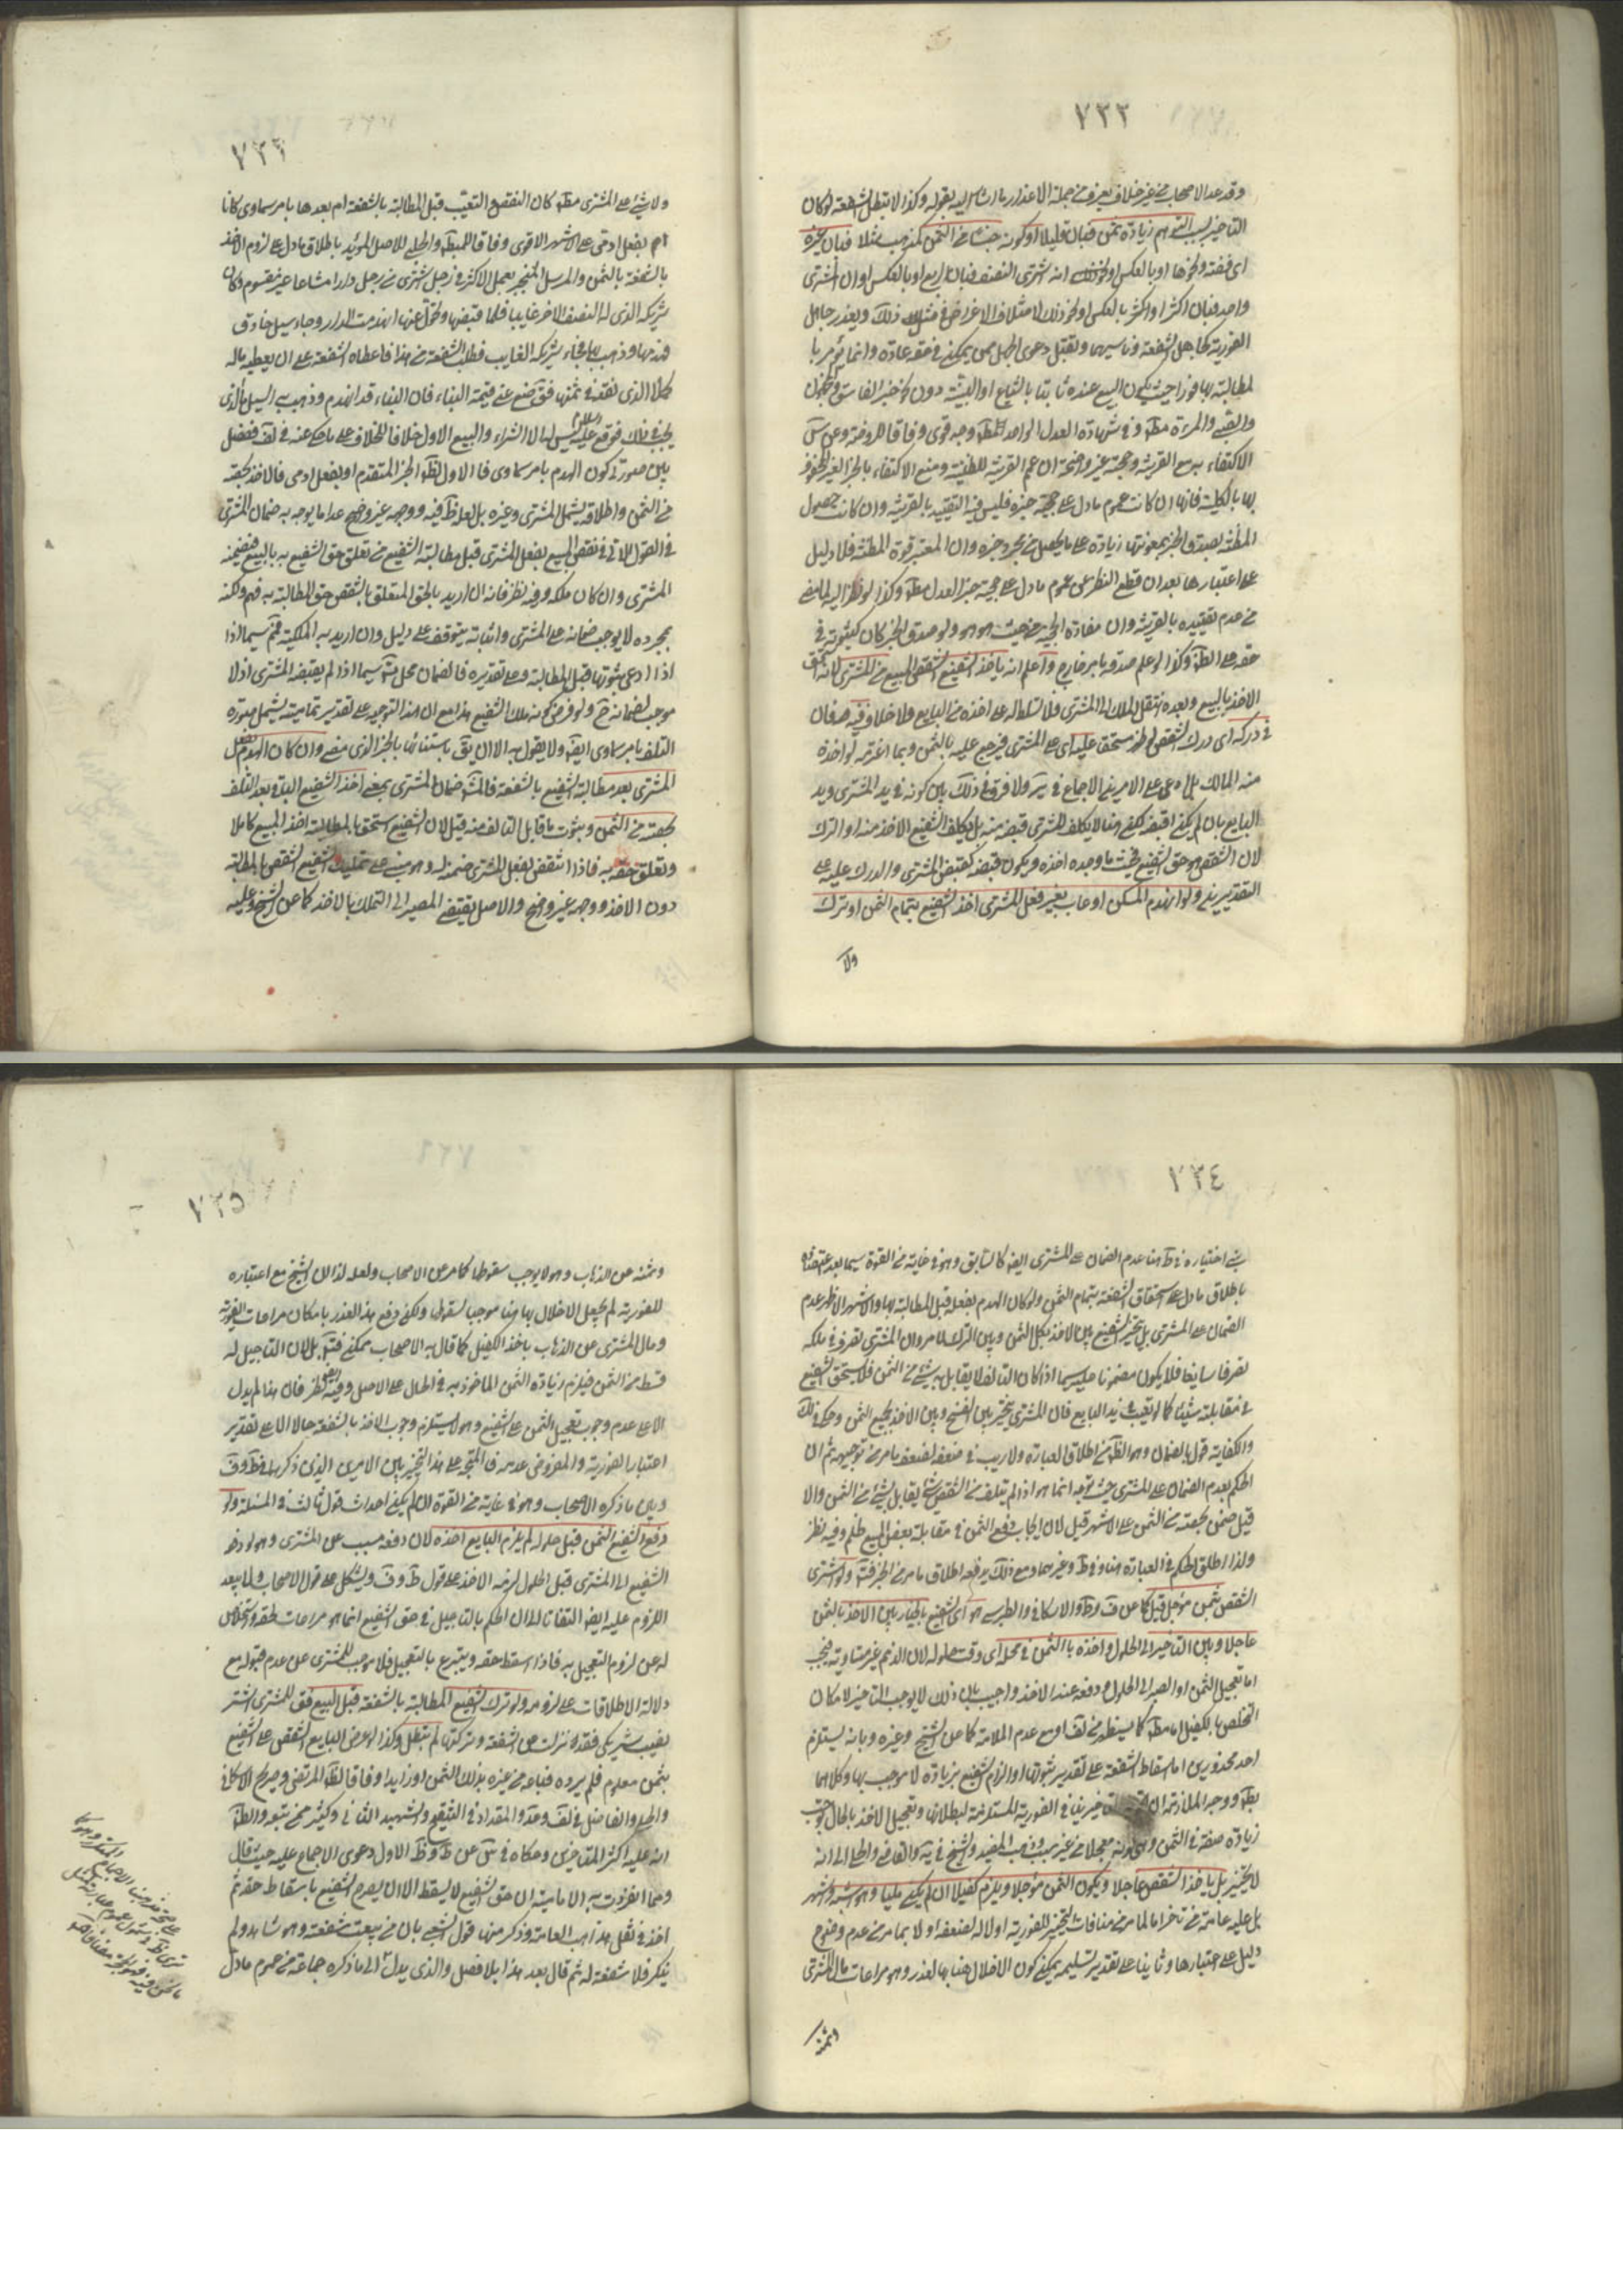 ٧٣٢
وقد عد الاصحاب من غير خلاف يعرف من جملة الاعذار ما اشار اليه بقوله وكذا لا تبطل الشفعة لو كان
التاخير بسبب التوهم زيادة ثمن فبان قليلا او كونه جنسا من الثمن كذهب مثلا فبان غيره
اى فضة ونحوها او بالعكس او انه اشترى النصف فبان الربع او بالعكس او ان المشترى
واحد فبان اكثر او اكثر بالعكس او نحو ذلك لاختلاف الاغراض فى مثل ذلك ويعذر جاهل
الفورية كجاهل الشفعة وناسيهما وتقبل دعوى الجهل ممن يمكن فى حقه عادة وانما يؤمر با
لمطالبة بها فورا حيث يكون البيع عنده ثابتا بالشياع او البينة دون نحو خبر الفاسق والمجهول
والصبى والمرءة مطلقا وفى شهادة العدل الواحد وجه قوى وفاقا للروضة وعن س
الاكتفاء به مع القرينة وحجته غير واضحة ان عم القرينة للظنية ومنع الاكتفاء بالخبر الغير المحفوف
بها بالكلية فانها ان كانت عموم مادل على حجية خبره فليس فيه التقييد بالقرينة وان كانت حصول
المظنة بصدق الخبر بمعونتها زيادة على ما يحصل من مجرد خبره وان المعتبر قوة المظنة فلا دليل
على اعتبارها بعد ان قطع النظر عن عموم مادل على حجية خبر العدل مطلقا وكذا لو نظر اليه لما مضى
من عدم تقييده بالقرينة وان مفاده الحجية من حيث هو هو ولو صدق المخبر كان كثبوته فى
حقه على الظاهر وكذا لو علم صدقه بامر خارج واعلم انه ياخذ الشفيع الشقص المبيع من المشترى لانه استحق
الاخذ بالبيع وبعده انتقل الملك الى المشترى فلا تسلط له على اخذه من البايع ولا خلاف فيه ضمان
دركه اى درك الشقص لو ظهر مستحقا عليه اى على المشترى فيرجع عليه بالثمن وبما اغترمه لو اخذه
منه المالك بل ادعى على الامرين الاجماع فى ير ولا فرق فى ذلك بين كونه فى يد المشترى ويد
البايع بان لم يكن اقبضه لكن هنا لا يكلف المشترى قبضه منه بل يكلف الشفيع الاخذ منه او الترك
لان الشقص هو حق الشفيع فحيث ما وجده اخذه ويكون قبضه كقبض المشترى والدرك عليه على
التقديرين ولو انهدم المسكن او عاب بغير فعل المشترى اخذ الشفيع بتمام الثمن او ترك
ولا
٧٣٣
ولا شئ على المشترى مطلقا كان النقص والتعيب قبل المطالبة بالشفعة ام بعدها بامر سماوى كانا
ام بفعل ادمى على الاشهر الاقوى وفاقا للمبسوط والحلى للاصل المؤيد باطلاق مادل على لزوم الاخذ
بالشفعة بالثمن والمرسل المنجبر بعمل الاكثر فى رجل اشترى من رجل دارا مشاعا غير مقسوم وكان
شريكه الذى له النصف الاخر غايبا فلما قبضها وتحول عنها انهدمت الدار وجاء سيل جارف
فهدمها وذهب بها فجاء شريكه الغايب فطلب الشفعة من هذا فاعطاه الشفعة على ان يعطيه ماله
كملا الذى نقده فى ثمنها فقال ضع عنى قيمة البناء فان البناء قد انهدم وذهب به السيل ما الذى
يجب فى ذلك فوقع عليه السلام ليس له الا الشراء والبيع الاول خلافا للخلاف على ما حكى عنه فى لف ففصل
بين صورتى كون الهدم بامر سماوى فالاول لظاهر الخبر المتقدم او بفعل ادمى فالاخذ بحصته
من الثمن واطلاقه يشمل المشترى وغيره بل لعله ظاهر فيه ووجهه غير واضح عدا ما يوجه به ضمان المشترى
فى القول الآتى فى نقص المبيع بفعل المشترى قبل مطالبة الشفيع من تعلق حق الشفيع به بالبيع فيضمنه
المشترى وان كان ملكه وفيه نظر فانه ان اريد بالحق المتعلق بالشقص حق المطالبة به فهو لكنه
بمجرده لا يوجب ضمانه على المشترى واثباته يتوقف على دليل وان اريد به الملكية فمم سيما اذا
اذا ادعى ثبوتها قبل المطالبة وعلى تقديره فالضمان محل سيما اذا لم يقبضه المشترى اذ لا
موجب لضمانه ح ولو فرض كونه ملك الشفيع هذا مع ان هذا التوجيه على تقدير تماميته يشمل صورة
التلف بامر سماوى ايضا ولا يقول به الا ان يقال باستثنائها بالخبر الذى مضى وان كان الهدم بفعل
المشترى بعد مطالبة الشفيع بالشفعة فالمشهور ضمان المشترى بمعنى اخذ الشفيع الباقى بعد التلف
بحصته من الثمن وثبوت ما قابل التالف منه قيل لان الشفيع استحق بالمطالبة اخذ المبيع كاملا
وتعلق حقه به فاذا انتقض بفعل المشترى ضمنه له وهو مبنى على تمليك الشفيع الشقص بالمطالبة
دون الاخذ ووجهه غير واضح والاصل يقتضى المصير الى التملك بالاخذ كما عن الشيخ وعليه
٧٣٤
بنى اختياره فى ط هنا عدم الضمان على المشترى ايضا كالسابق وهو فى غاية من القوة سيما بعد اعتضاده
باطلاق مادل على استحقاق الشفعة بتمام الثمن ولو كان الهدم بفعله قبل المطالبة بها والاشهر الاظهر عدم
الضمان على المشترى بل يتخير الشفيع بين الاخذ بكل الثمن وبين الترك لما مر وان المشترى تصرف فى ملكه
تصرفا سايغا فلا يكون مضمونا عليه سيما اذا كان التالف لا يقابل بشئ من الثمن فلا يستحق الشفيع
فى مقابلته شيئا كما لو تعيب فى يد البايع فان المشترى يتخير بين الفسخ وبين الاخذ بجميع الثمن وحكى فى لك
والكفاية قولا بالضمان وهو الظاهر من اطلاق العبارة ولا ريب فى ضعفه لضعف ما مر من توجيهه ثم ان
الحكم بعدم الضمان على المشترى حيث توجه انما هو اذا لم يتلف من الشقص شئ يقابل بشئ من الثمن والا
قيل ضمن بحصته من الثمن على الاشهر قيل لان ايجاب دفع الثمن فى مقابلة بعض المبيع ظلم وفيه نظر
ولذا اطلق الحكم فى العبارة هنا وفى ط وغيرهما ومع ذلك يدفعه اطلاق ما مر من الخبر فتامل ولو اشترى
الشقص بثمن مؤجل قيل كما عن ف وط والاسكافى والطبرسى هو اى الشفيع بالخيار بين الاخذ بالثمن
عاجلا وبين التاخير الى الحلول واخذه بالثمن فى محله اى وقت حلوله لان الذمم غير متساوية فيجب
اما تعجيل الثمن او الصبر الى الحلول ودفعه عند الاخذ واجيب بان ذلك لا يوجب التاخير لامكان
التخلص بالكفيل اما مطلقا كما يستظهر من لف او مع عدم الملائة كما عن الشيخ وغيره وبانه يستلزم
احد محذورين اما اسقاط الشفعة على تقدير ثبوتها او الزام الشفيع بزيادة لا موجب بها وكلاهما
بطل ووجه الملازمة ان التاخير ينافى الفورية المستلزمة لبطلانها وتعجيل الاخذ بالحال يوجب
زيادة صفة فى الثمن وهى كونه معجلا من غير سبب وذهب المفيد والشيخ فى ية والقاضى والحلى الى انه
لا يتخير بل ياخذ الشقص عاجلا ويكون الثمن مؤجلا ويلزم كفيلا ان لم يكن مليا وهو اشبه واشهر
بل عليه عامة من تاخر اما لما مر من منافات التخير للفورية اولا لضعفه اولا بما مر من عدم وضوح
دليل على اعتبارها وثانيا على تقدير تسليمه يمكن كون الاخلال هنا بها لعذر وهو مراعات مال المشترى
وثمنه
٧٣٥
وثمنه عن الذهاب وهو لا يوجب سقوطها كما مر عن الاصحاب ولعله لذا ان الشيخ مع اعتباره
للفورية لم يجعل الاخلال بها هنا موجبا لسقوطها ولكن دفع هذا العذر بامكان مراعات الفورية
ومال المشترى عن الذهاب باخذ الكفيل كما قال به الاصحاب ممكن فتامل بل لان التاجيل له
قسط من الثمن فيلزم زيادة الثمن الماخوذ به فى الحال على الاصل وفيه ايضا نظر فان هذا لم يدل
الا على عدم وجوب تعجيل الثمن على الشفيع وهو لا يستلزم وجوب الاخذ بالشفعة حالا الا على تقدير
اعتبار الفورية والمفروض عدمه فالمتجه على هذا التخيير بين الامرين الذين ذكرهما فى ط وف
وبين ما ذكره الاصحاب وهو فى غاية من القوة ان لم يكن احداث قول ثالث فى المسئلة ولو
دفع الشفيع الثمن قبل حلوله لم يلزم البايع اخذه لان دفعه مسبب عن المشترى وهو لو دفع
الشفيع الى المشترى قبل الحلول لزمه الاخذ على قول ط وف ويشكل على قول الاصحاب ولا يبعد
اللزوم عليه ايضا التفاتا الى ان الحكم بالتاجيل فى حق الشفيع انما هو مراعات لحقه واستخلاص
له عن لزوم التعجيل به فاذا اسقط حقه وتبرع بالتعجيل فلا موجب للمشترى عن عدم قبوله مع
دلالة الاطلاقات على لزومه ولو ترك الشفيع المطالبة بالشفعة قبل البيع فقال للمشترى اشتر
نصيب شريكى فقد نزلت عن الشفعة وتركتها لم تبطل وكذا لو عرض البايع الشقص على الشفيع
بثمن معلوم فلم يرده فباعه من غيره بذلك الثمن او زايدا وفاقا لظاهر المرتضى وصريح الاسكافى
والحلى والفاضل فى لف وعد والمقداد فى التنقيح والشهيد الثانى وكثير ممن تبعه والظاهر
انه عليه اكثر المتاخرين وحكاه فى س عن ط وظاهر الاول دعوى الاجماع عليه حيث قال
ومما انفردت به الامامية ان حق الشفيع لا يسقط الا ان يصرح الشفيع باسقاط حقه ثم
اخذ فى نقل مذاهب العامة وذكر منها قول الشعبى بان من بيعت شفعته وهو شاهد ولم
ينكر فلا شفعة له ثم قال بعد هذا بلا فصل والذى يدل الى ما ذكره جماعة من عموم مادل